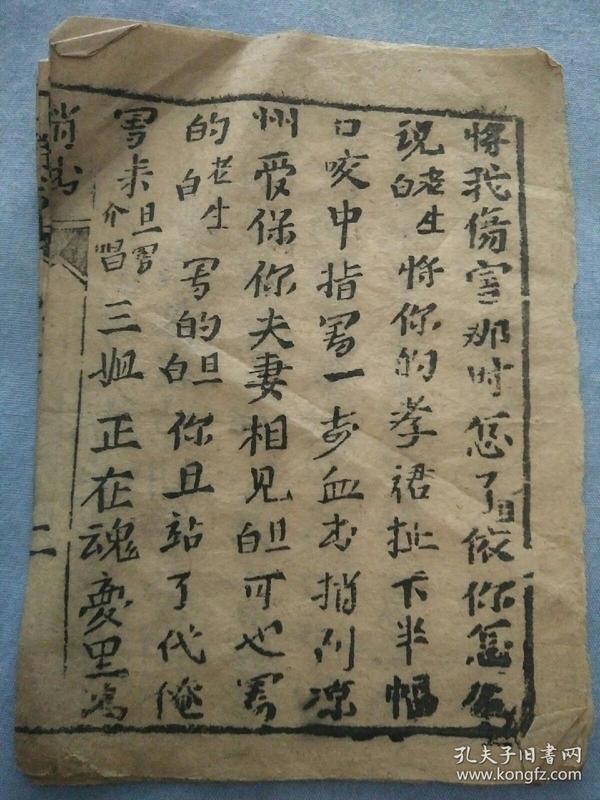 将我傷害那时怎了旦依你怎仫
説老生白将你的孝裙扯下半幅
口咬中指写一封血书捎到凉
州爱保你夫妻相见旦白可也写
的老生白写的旦白你且站了代俺
写来旦写介唱三姐正在魂梦里鴻
捎书
二
孔夫子旧书网
www.kongfz.com